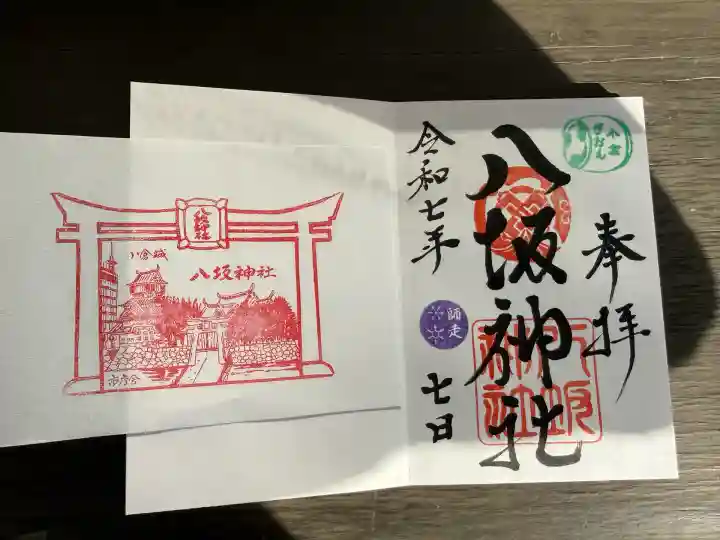 八坂神社
小倉城
八坂神社
小倉
ぎおん
奉拝
八坂神社
八坂
神社
令和七年
師走
七日